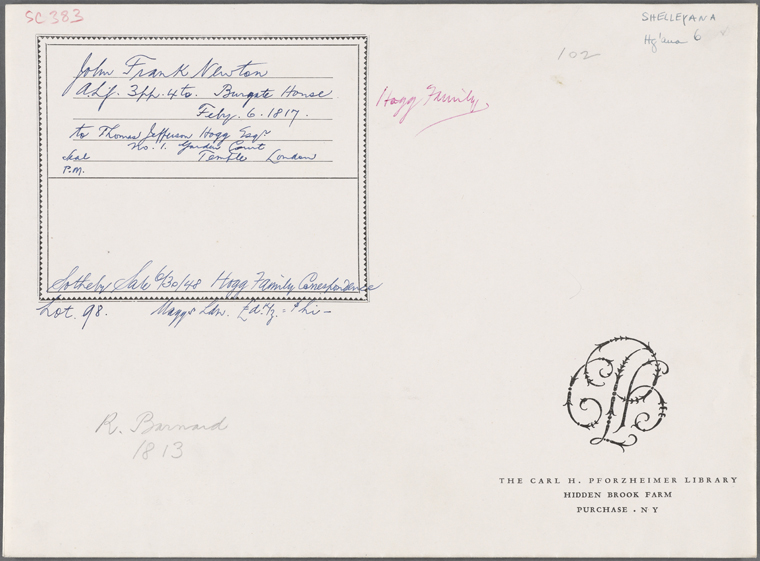 SC 383
SHELLEYANA
Hg'ana 6
102
John Frank Newton
A.L.S. 3pp. 4to. Burgate House
Feby. 6. 1817.
to Thomas Jefferson Hogg Esqr
No. 1. Garden Court
Seal Temple London
P.M.
Hogg Family
Sotheby Sale 6/30/48 Hogg Family Correspondence
Lot. 98. Maggs
R. Barnard
1813
THE CARL H. PFORZHEIMER LIBRARY
HIDDEN BROOK FARM
PURCHASE . NY